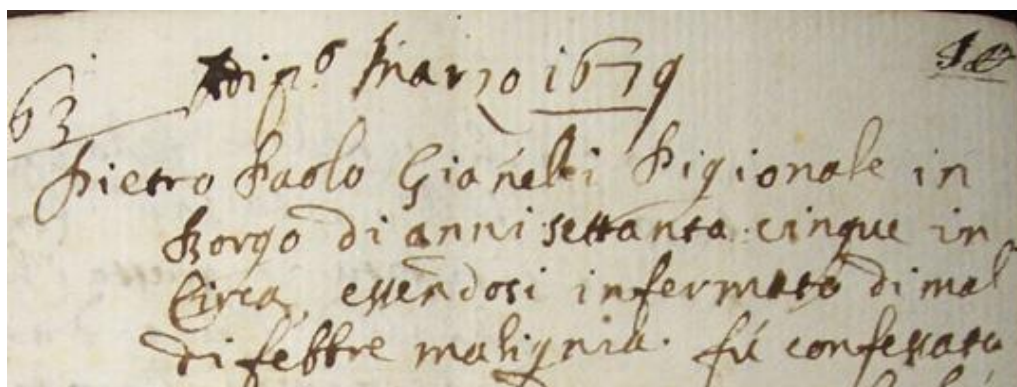 63 Adi p.º Marzo 1679
Pietro Paolo Gianelli Pigionale in
Borgo di anni settanta cinque in
Circa, essendosi infermato di mal
di febbre malignia. fú confessato